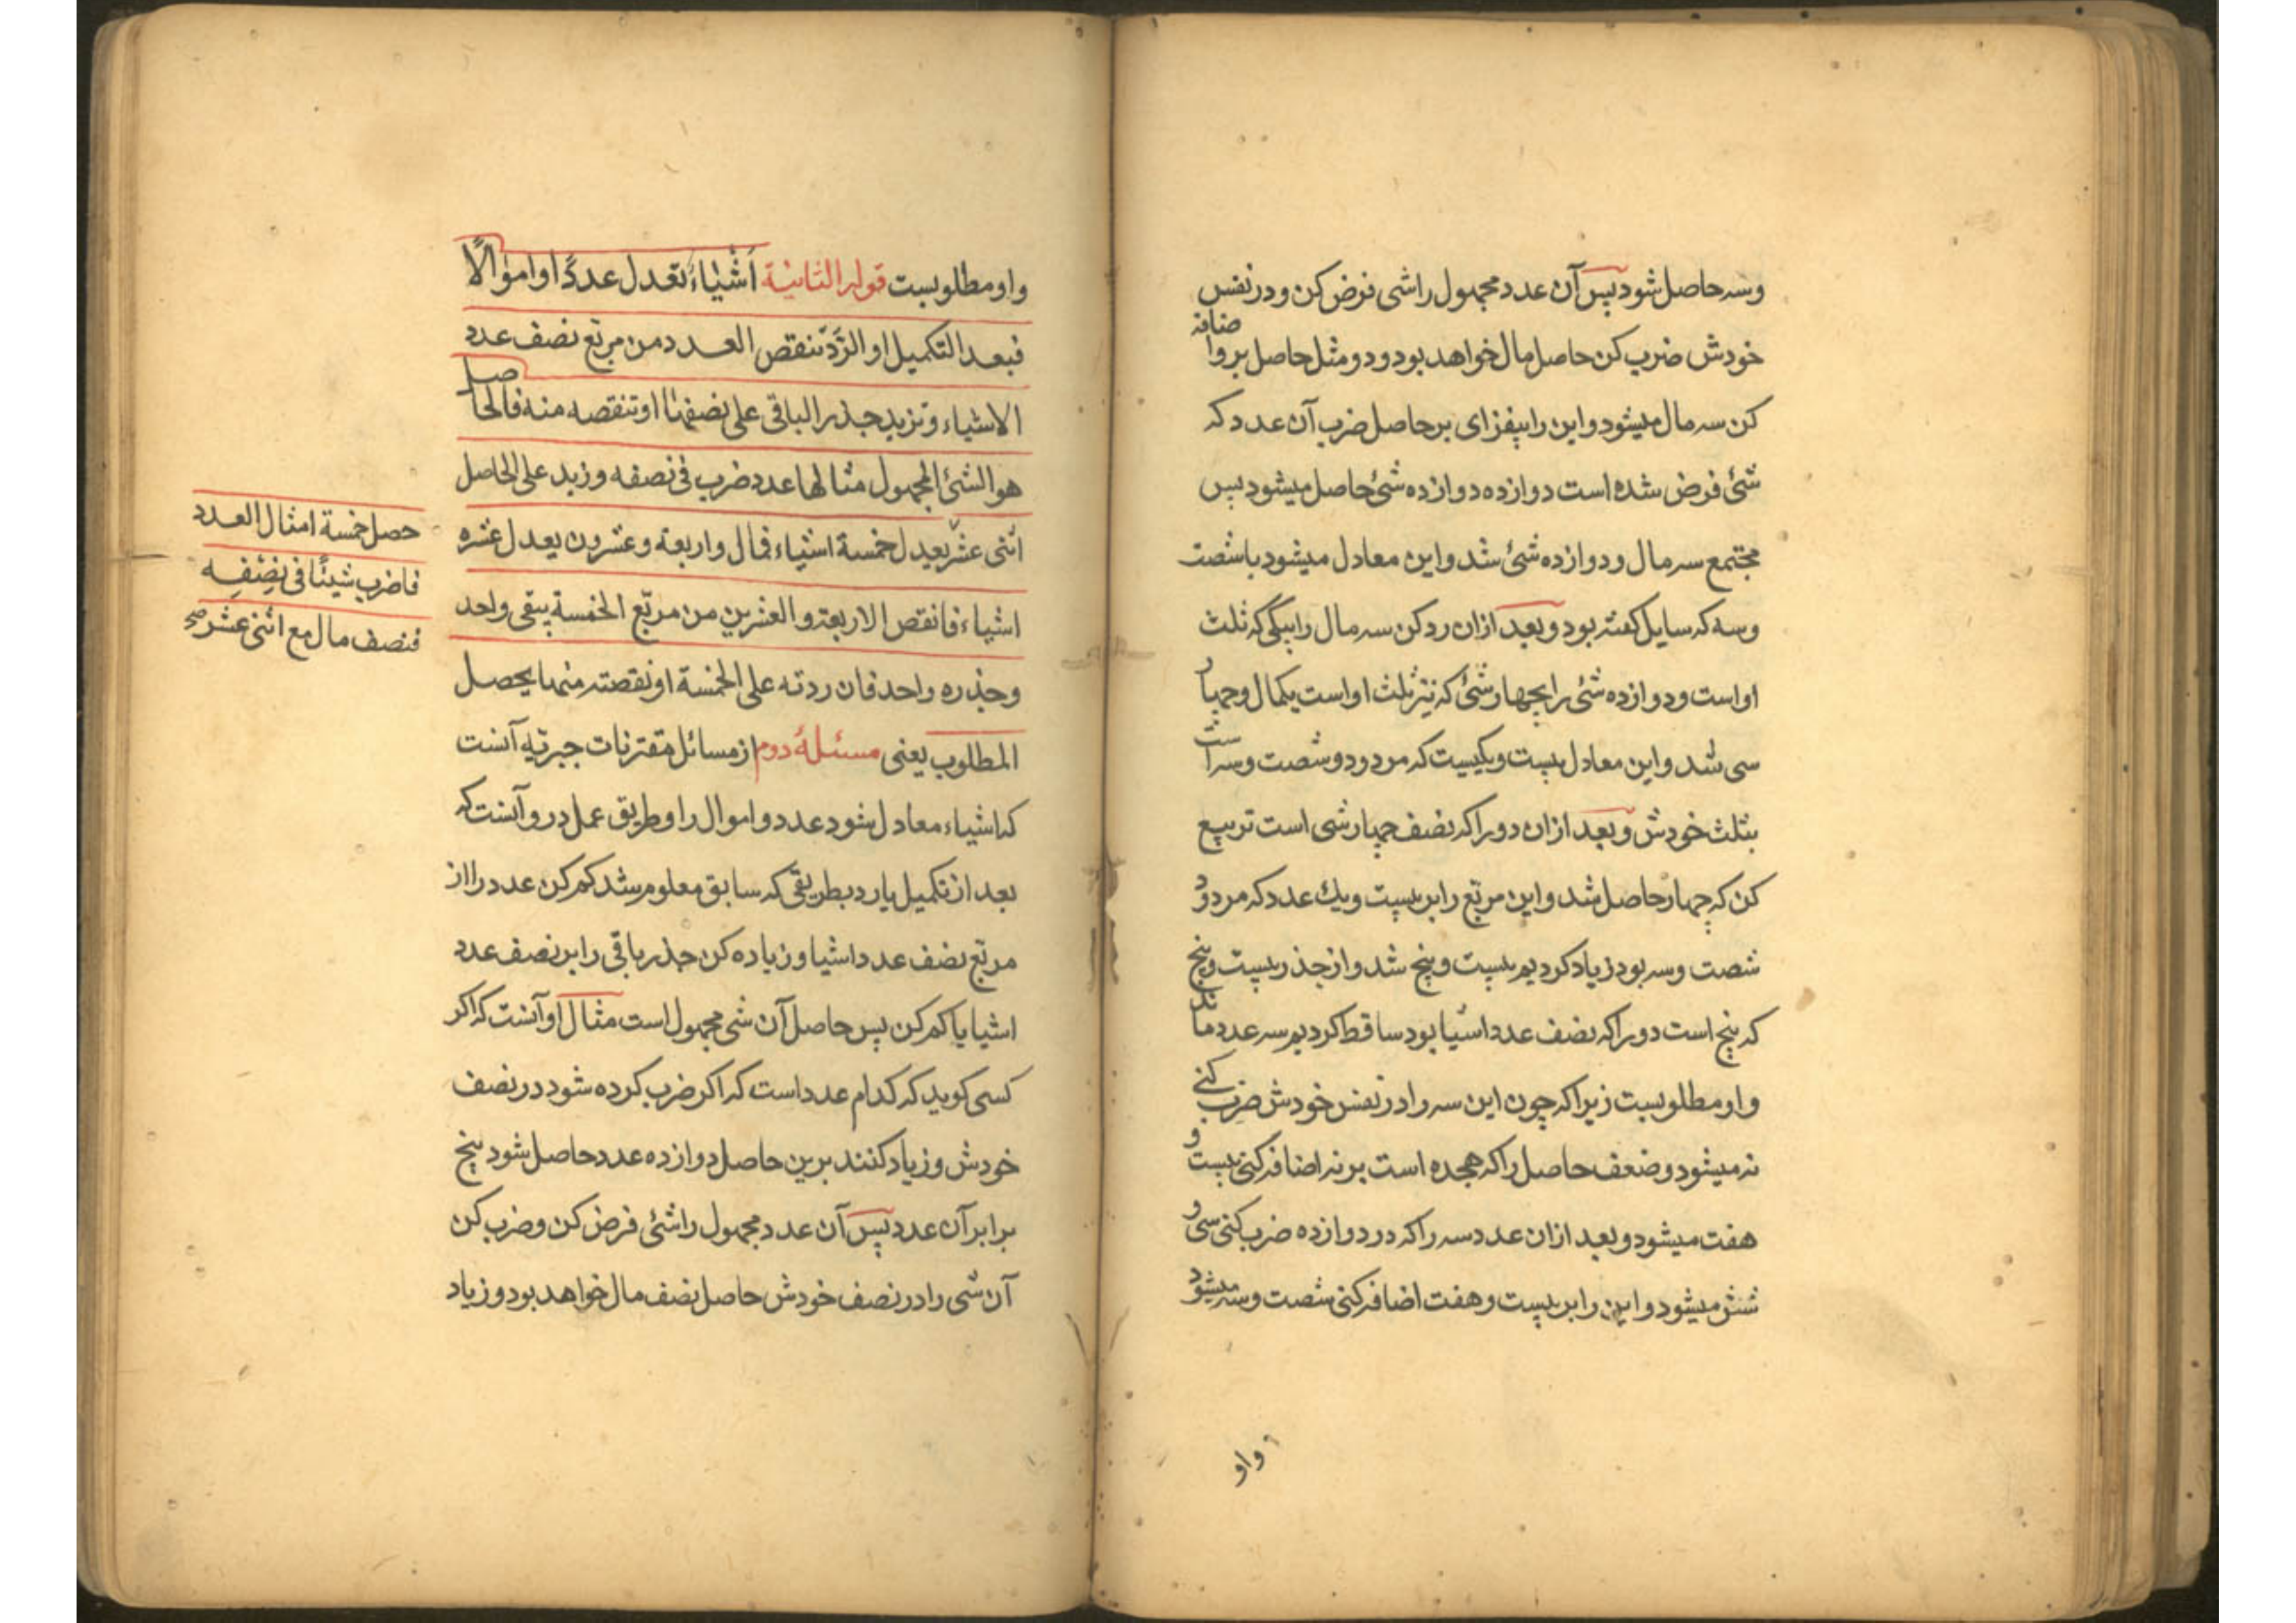 وسه حاصل شود پس آن عدد مجهول را شی فرض کن و در نفس
خودش ضرب کن حاصل مال خواهد بود و دو مثل حاصل برو اضافه
کن سه مال میشود و این را بیفزای بر حاصل ضرب آن عدد که
شئ فرض شده است دوازده دوازده شئ حاصل میشود پس
مجتمع سه مال و دوازده شئ شد و این معادل میشود با شصت
وسه که سایل کفته بود و بعد ازان رد کن سه مال را بیکی که ثلث
او است و دوازده شئ را بچهار شئ که نیز ثلث او است یکمال و چهار
سی شد و این معادل بیست و یکیست که مردود و شصت وسه است
بثلث خودش و بعد ازان دو را که نصف چهار شی است تربیع
کن که چهار حاصل شد و این مربّع را بر بیست و یك عدد که مردود
شصت وسه بود زیاد کردیم بیست و پنج شد و از جذر بیست و پنج
که پنج است دو را که نصف عدد اشیا بود ساقط کردیم سه عدد ماند
و او مطلوبست زیرا که چون این سه را در نفس خودش ضرب کنی
نه میشود و ضعف حاصل را که هجده است بر نه اضافه کنی بیست و
هفت میشود و بعد ازان عدد سه را که در دوازده ضرب کنی سی و
شش میشود و این را بر بیست و هفت اضافه کنی شصت وسه میشود
واو
واو مطلوبست قوله الثانیة أشیاء تعدل عددًا او اموالًا
فبعد التکمیل او الرّدّ تنقص العدد من مربّع نصف عدد
الاشیاء وتزید جذر الباقی علی نصفها او تنقصه منه فالحاصل
هو الشئ المجهول مثالها عدد ضرب فی نصفه وزید علی الحاصل
اثنی عشر یعدل خمسة اشیاء فمال واربعة وعشرون یعدل عشره
اشیاء فانقص الاربعة والعشرین من مربّع الخمسة یبقی واحد
وجذره واحد فان ردته علی الخمسة او نقصته منها یحصل
المطلوب یعنی مسئلهٔ دوم از مسائل مقترنات جبریّه آنست
که اشیاء معادل شود عدد و اموال را و طریق عمل درو آنست که
بعد از تکمیل یا رد بطریقی که سابق معلوم شد کم کن عدد را از
مربّع نصف عدد اشیا و زیاده کن جذر باقی را بر نصف عدد
اشیا یا کم کن پس حاصل آن شی مجهول است مثال او آنست که اکر
کسی کوید که کدام عدد است که اکر ضرب کرده شود در نصف
خودش و زیاد کنند برین حاصل دوازده عدد حاصل شود پنج
برابر آن عدد پس آن عدد مجهول را شئی فرض کن و ضرب کن
آن شی را در نصف خودش حاصل نصف مال خواهد بود و زیاد
حصل خمسة امثال العدد
فاضرب شیئًا فی نصفه
فنصف مال مع اثنی عشر صح